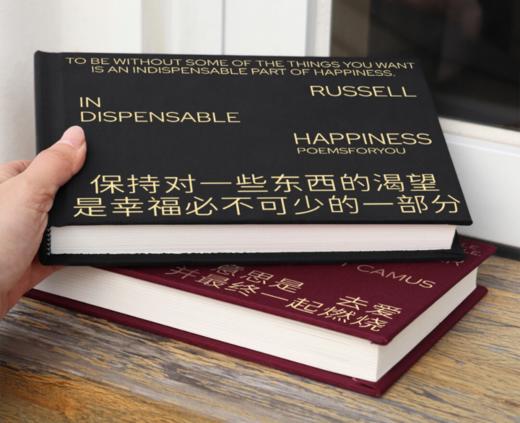 TO BE WITHOUT SOME OF THE THINGS YOU WANT
IS AN INDISPENSABLE PART OF HAPPINESS.
RUSSELL
IN
DISPENSABLE
HAPPINESS
POEMSFORYOU
保持对一些东西的渴望
是幸福必不可少的一部分
CAMUS
意思是 去爱
并最终一起燃烧